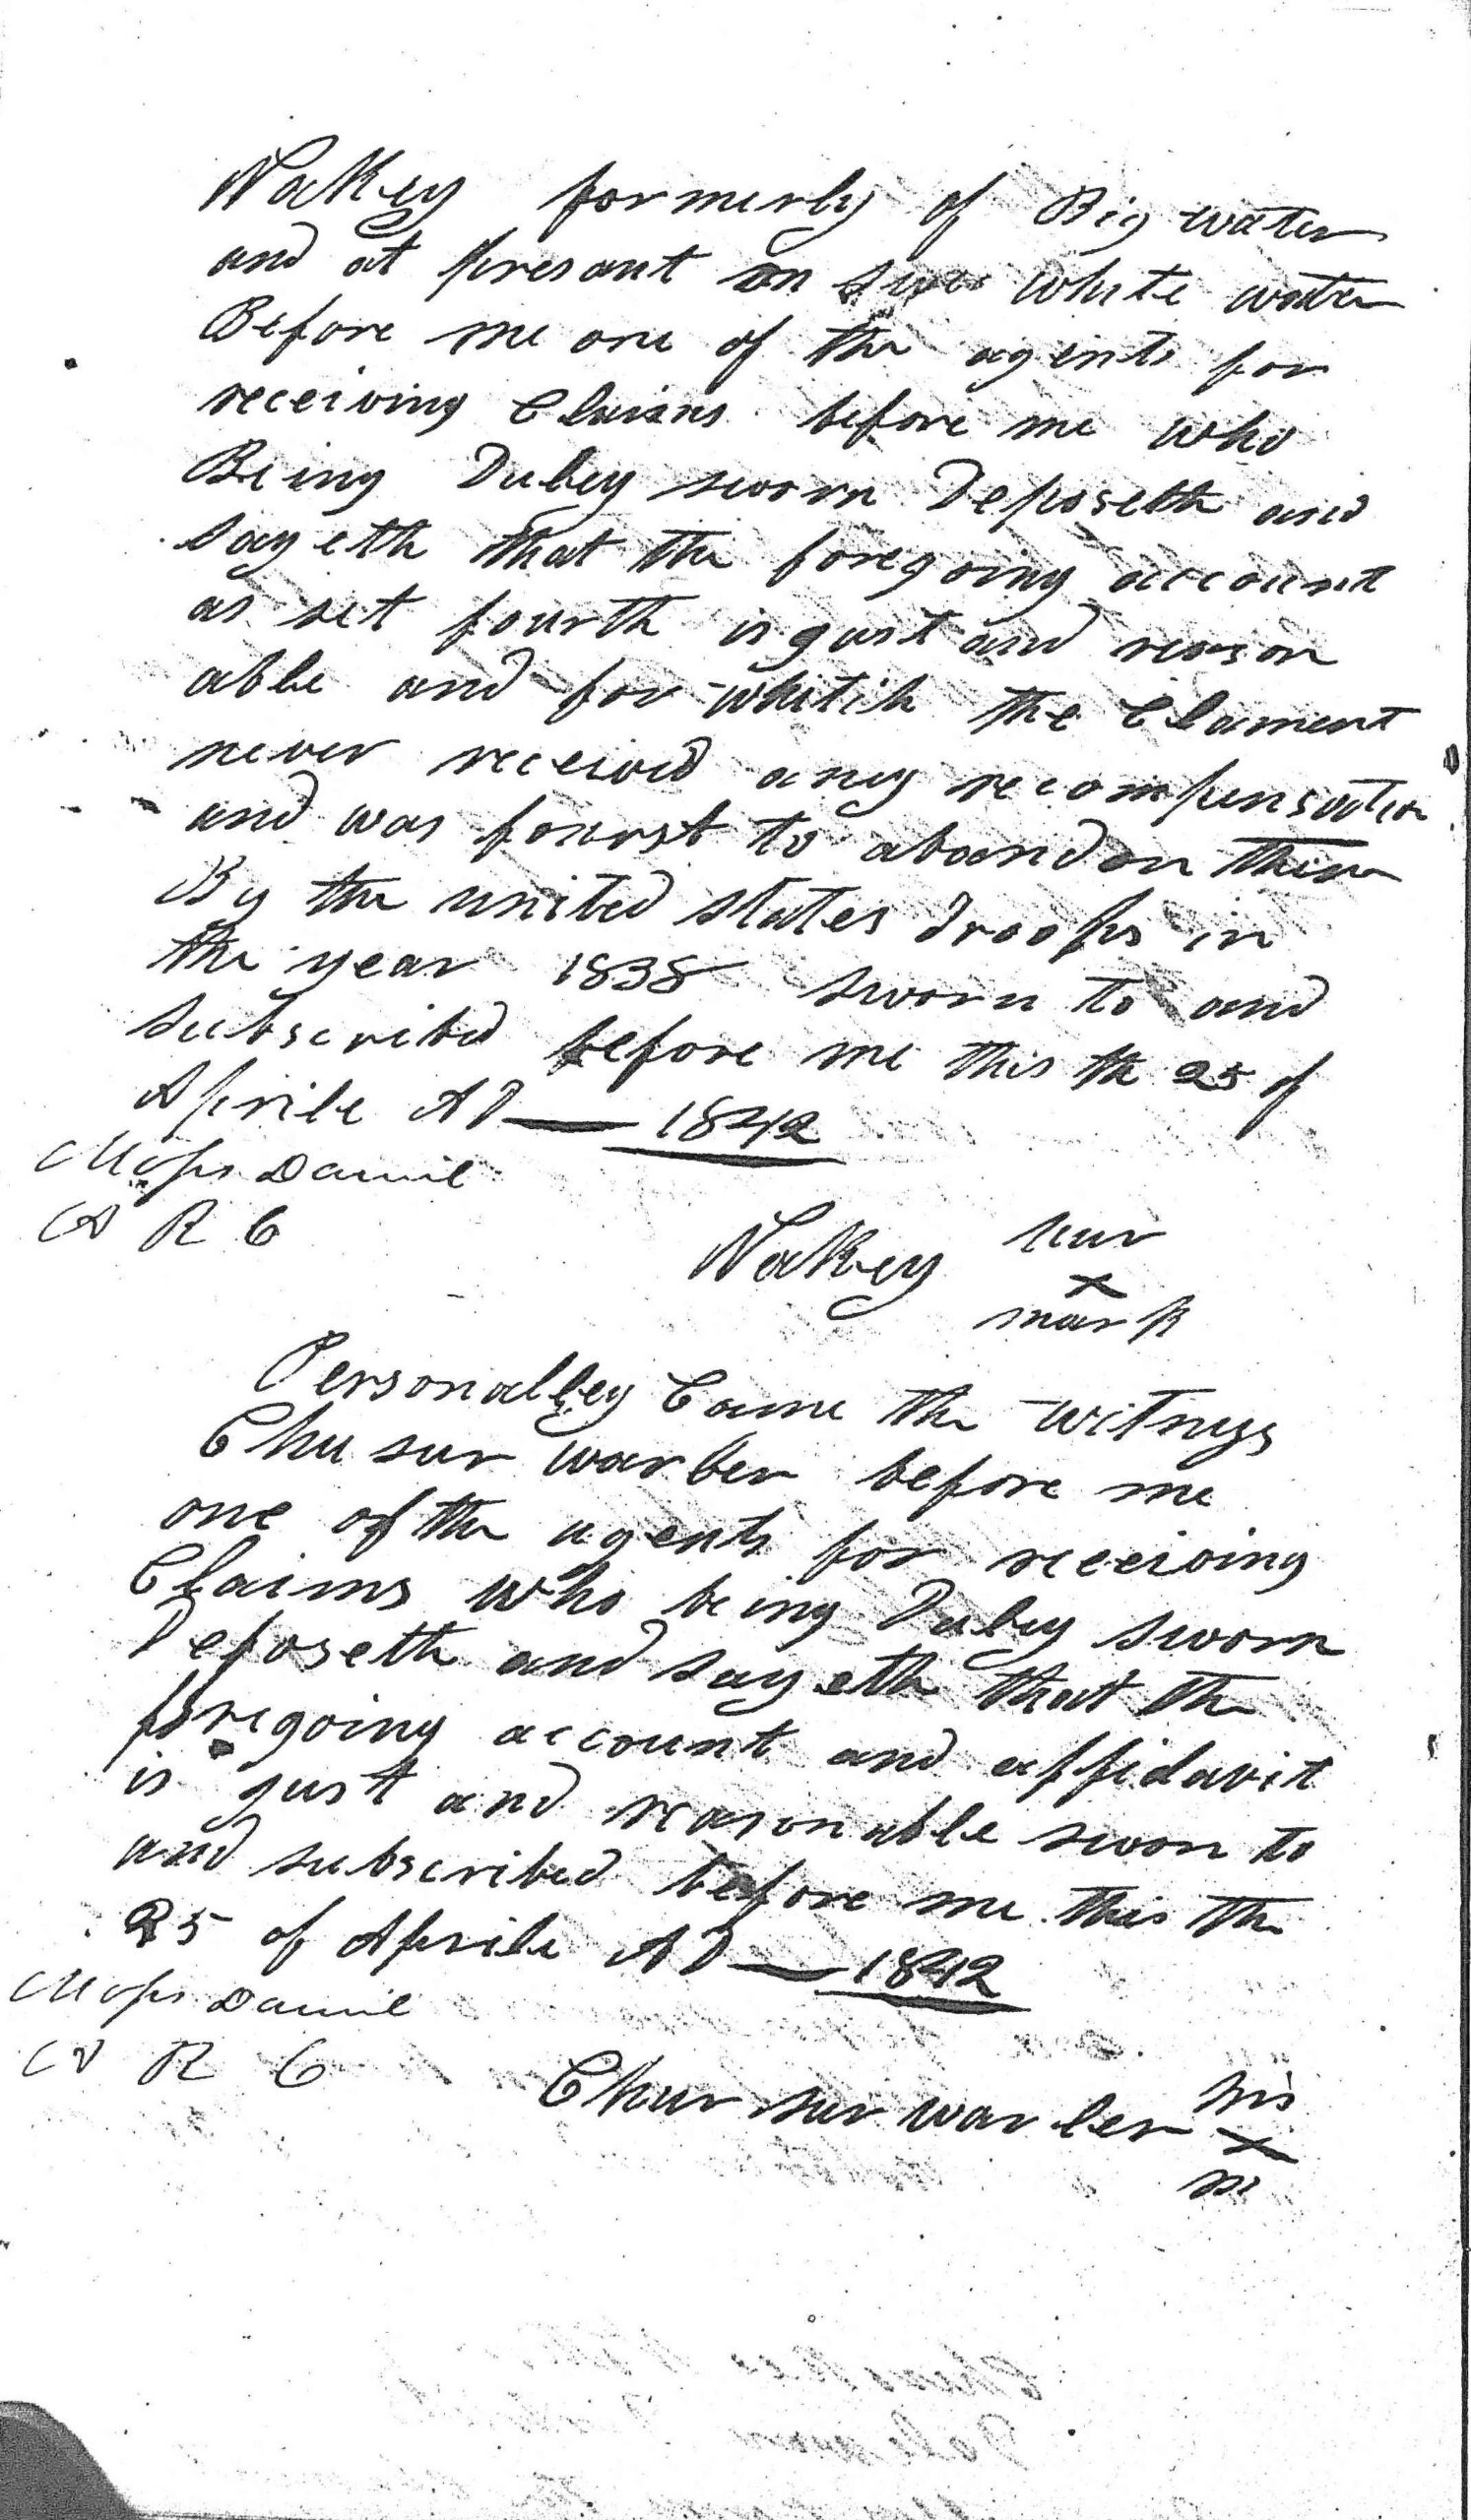 Nakey formerly of Big water
and at presant on white water
Before me one of the agents for
receiving Claims before me who
Being Duley sworn Deposeth and
sayeth that the foregoing account
as set fourth is gust and reason
able and for whitih the Clament
never received any recompensation
and was fourst to abandon them
By the united states Troops in
the year 1838 sworn to and
subscribed before me this the 25 of
Aprile AD — 1842
Moses Daniel
A R C
Nakey hur
x
mark
Personalley Came the witness
Chu sur warler before me
one of the agents for receiving
Claims who being Duley sworn
Deposeth and sayeth that the
foregoing account and affidavit
is gust and reasonable swon to
and subscribed before me this the
25 of Aprile AD — 1842
Moses Daniel
A R C
Chur sur war ler his
x
m